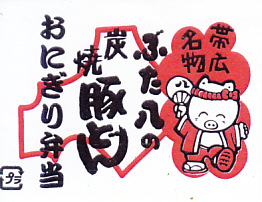 帯広
名物
ぶた八の
炭焼豚どん
おにぎり弁当
プラ